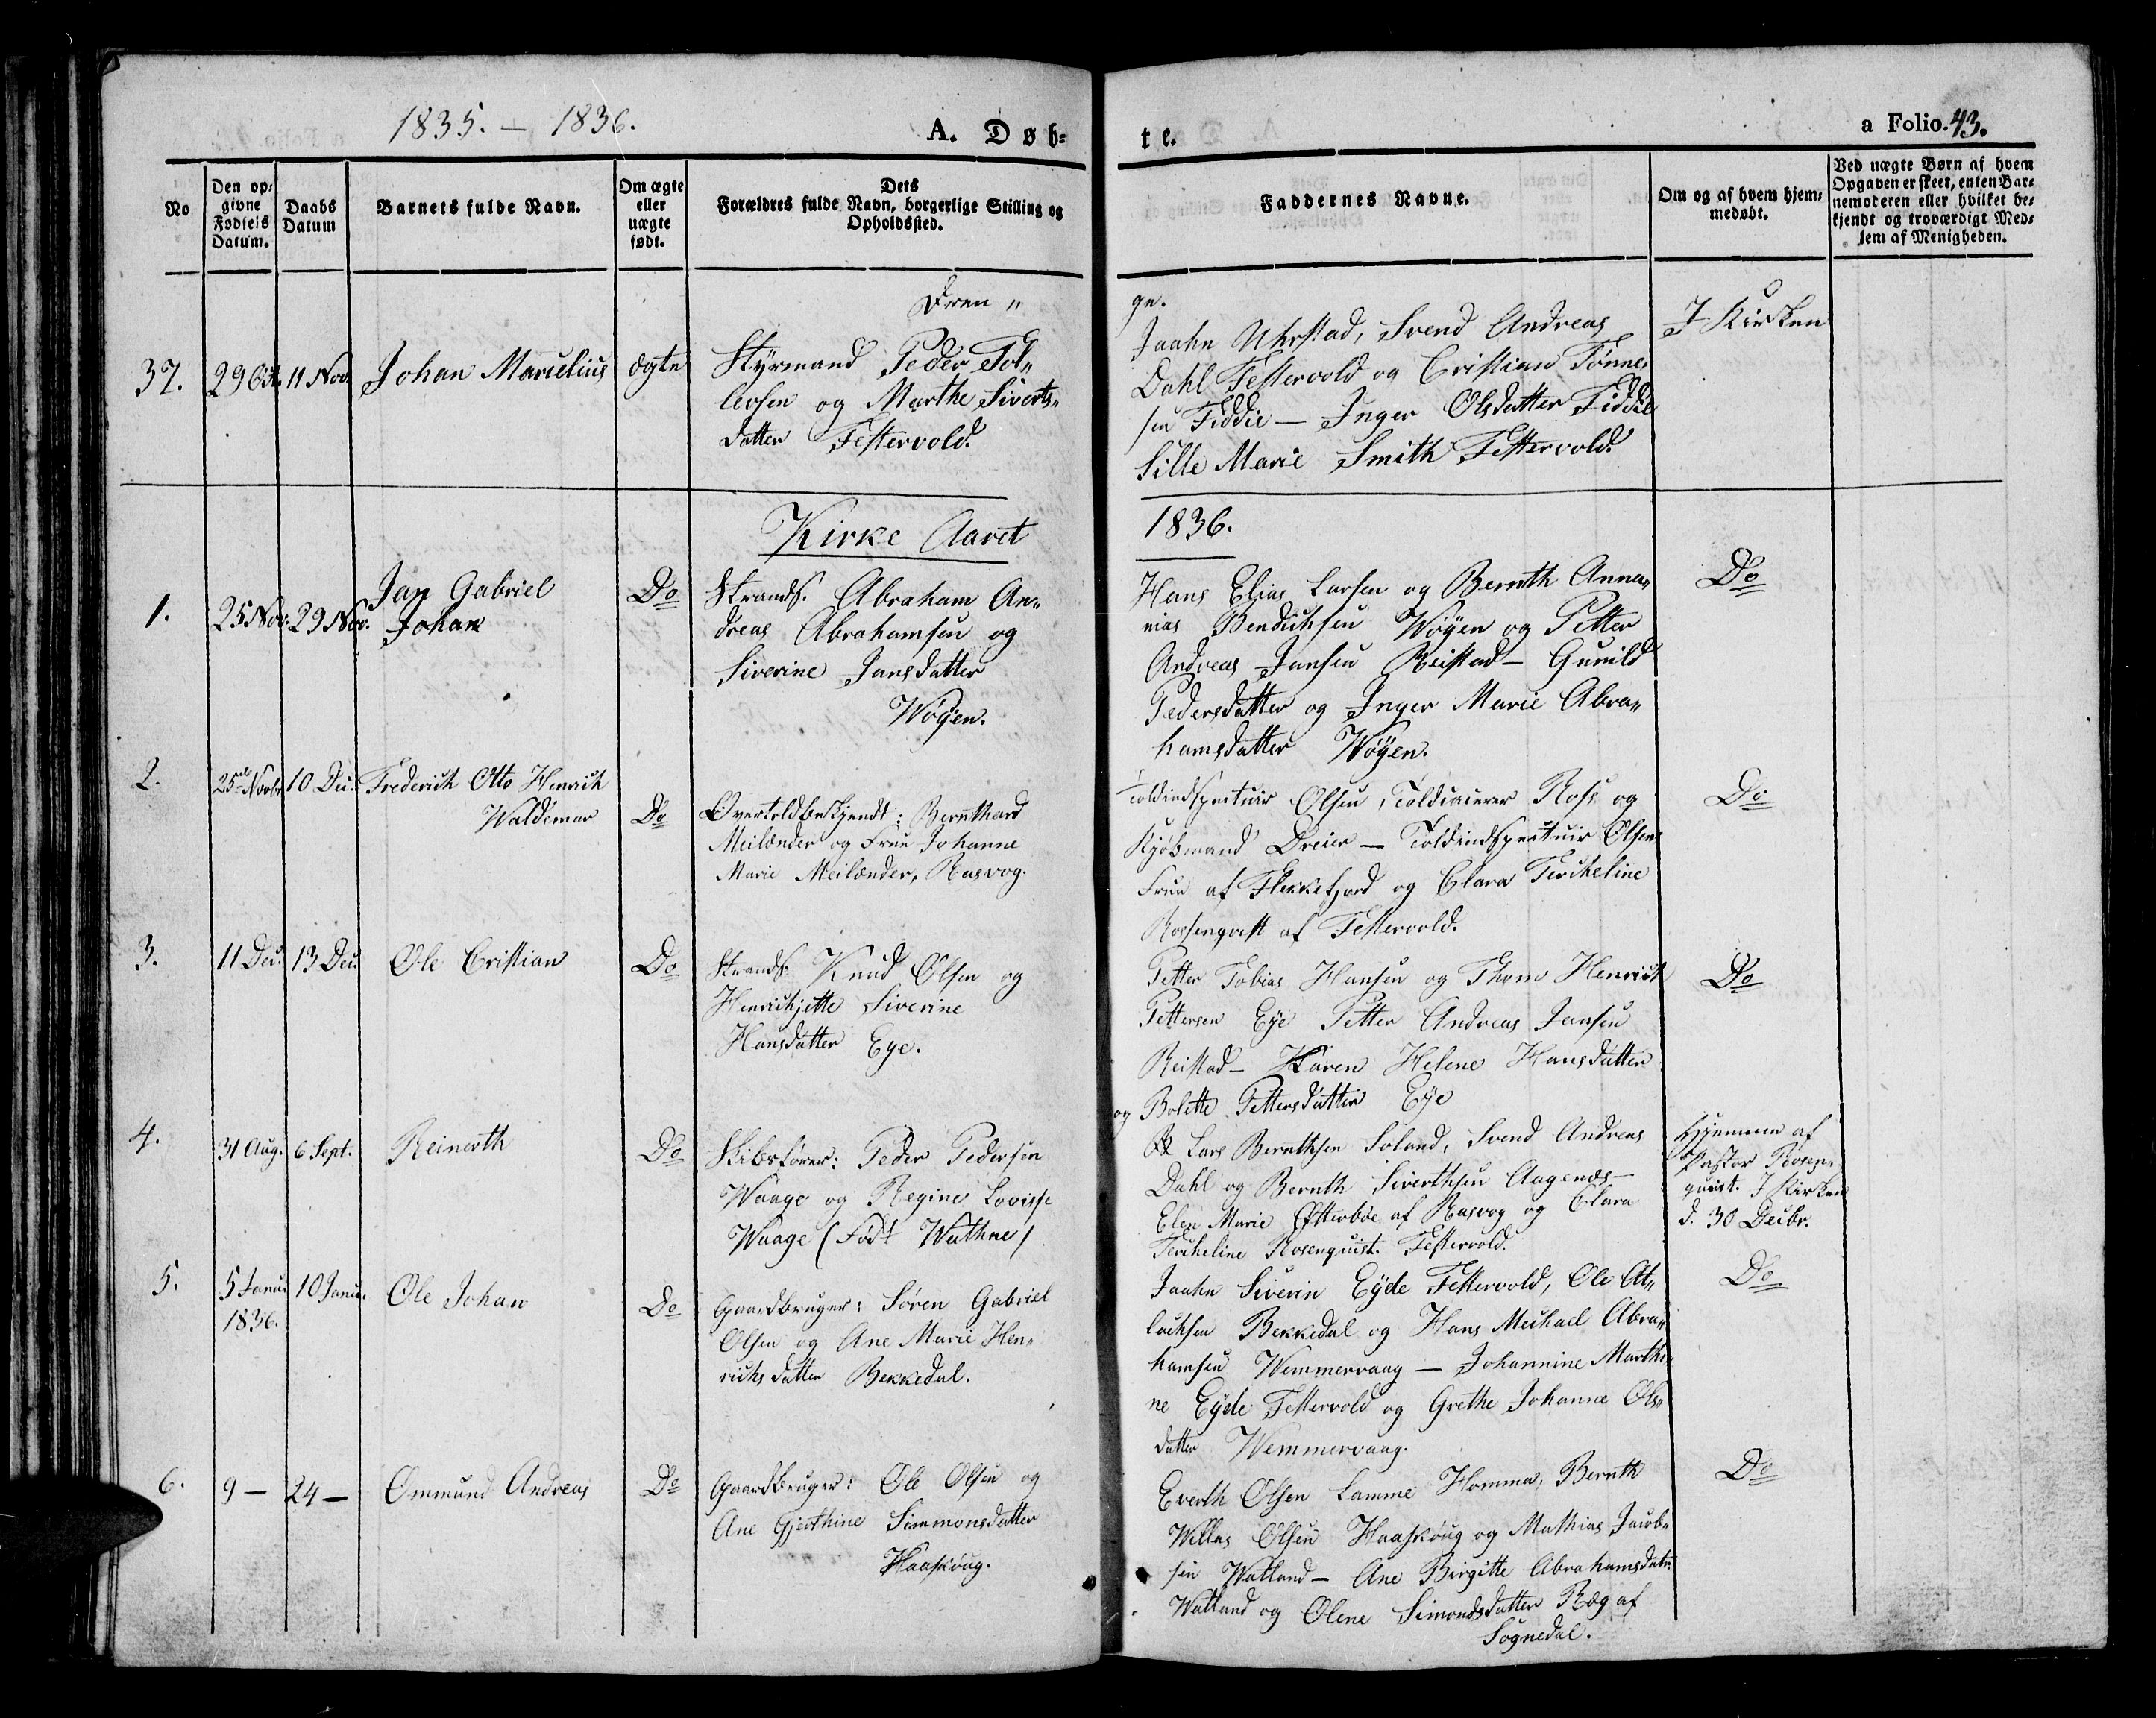 1835. – 1836.
A. Døb=
te.
a Folio. 43.
No
Den op=
givne
Fødsels
Datum.
Daabs
Datum
Barnets fulde Navn.
Om ægte
eller
uægte
født.
Dets
Forældres fulde Navn, borgerlige Stilling og
Opholdssted.
Faddernes Navne.
Om og af hvem hjem=
medøbt.
Ved uægte Børn af hvem
Opgaven er skeet, enten Bar=
nemoderen eller hvilket be=
kjendt og troværdigt Med=
lem af Menigheden.
Dren „
ge.
37.
29 Oct.
11 Nov.
Johan Marselius
ægte
Styrmand Peder Tol„
lersen og Marthe Siverts„
datter Festervold.
Jaahn Uhrstad, Svend Andreas
Dahl Festervold og Cristian Tønne„
sen Fiddie – Inger Olsdatter Fiddie
Sille Marie Smith Festervold.
I Kirken
Kirke Aaret
1836.
1.
25 Nov.
29 Nov.
Jan Gabriel
Johan
Do
Strands. Abraham An„
dreas Abrahamsen og
Siverine Jansdatter
Wøyen.
Hans Elias Larsen og Bernth Anna„
nias Bendichsen Wøyen og Petter
Andreas Jansen Reistad – Gunild
Pedersdatter og Inger Marie Abra„
hamsdatter Wøyen.
Do
2.
25de Novbr
10 Dec.
Frederich Otto Henrich
Waldemar
Do
Overtoldbetjendt: Bernthard
Meilænder og Frue Johanne
Marie Meilænder, Rasvog.
Toldindspecteuir Olsen, Toldcaserer Ross og
Kjøbmand Dreier – Toldindspecteuir Olsens
Frue af Flekkefjord og Clara Tercheline
Rossenqvist af Festervold.
Do
3.
11 Dec.
13 Dec.
Ole Cristian
Do
Strands. Knud Olsen og
Henrichjette Siverine
Hansdatter Eye.
Petter Tobias Hansen og Thom Henrich
Pettersen Eye Petter Andreas Jansen
Reistad – Karen Helene Hansdatter
og Bolette Pettersdatter Eye
Do
4.
31 Aug.
6 Sept.
Reinerth
Do
Skibsfører: Peder Pedersen
Waage og Regine Lovisse
Waage (Født Wathne)
Lars Bernthsen Soland, Svend Andreas
Dahl og Bernth Siverthsen Aagenæs –
Elen Marie Østerboe af Rasvog og Clara
Tercheline Rosenquist. Festervold.
Hjemmen af
Pastor Rosen„
quist. I Kirken
d. 30 Decbr.
5.
5 Janu.
1836.
10 Janu.
Ole Johan
Do
Gaardbruger: Søren Gabriel
Olsen og Ane Marie Hen„
richsdatter Bekkedal.
Jaahn Siverin Eyde Festervold, Ole At„
lachsen Bekkedal og Hans Michael Abra„
hamsen Wemmervaag – Johannine Marthi„
ne Eyde Festervold og Grethe Johanne Ols„
datter Wemmervaag.
Do
6.
9 –
24 –
Ommund Andreas
Do
Gaardbruger: Ole Olsen og
Ane Gjerthine Simmonsdatter
Haaskoug.
Everth Olsen Lamme Homme, Bernth
Willas Olsen Haaskoug og Mathias Jacob„
sen Watland – Ane Birgitte Abrahamsdatr.
Watland og Olene Simondsdatter Ræg af
Sognedal.
Do